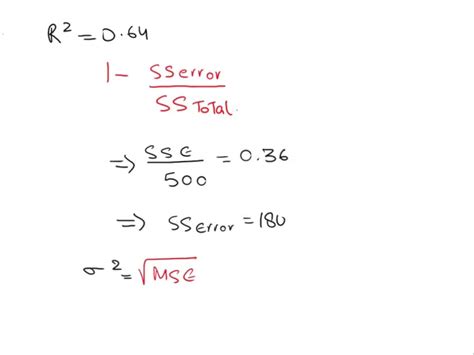 R² = 0.64
1 - SSerror / SSTotal.
⇒ SSE / 500 = 0.36
⇒ SSError = 180
σ² = √MSE